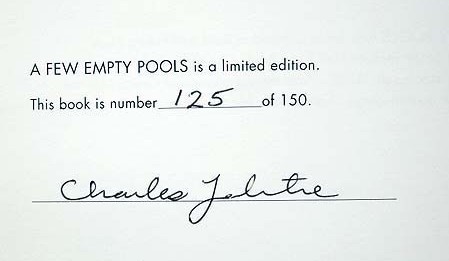 A FEW EMPTY POOLS is a limited edition.
This book is number 125 of 150.
Charles